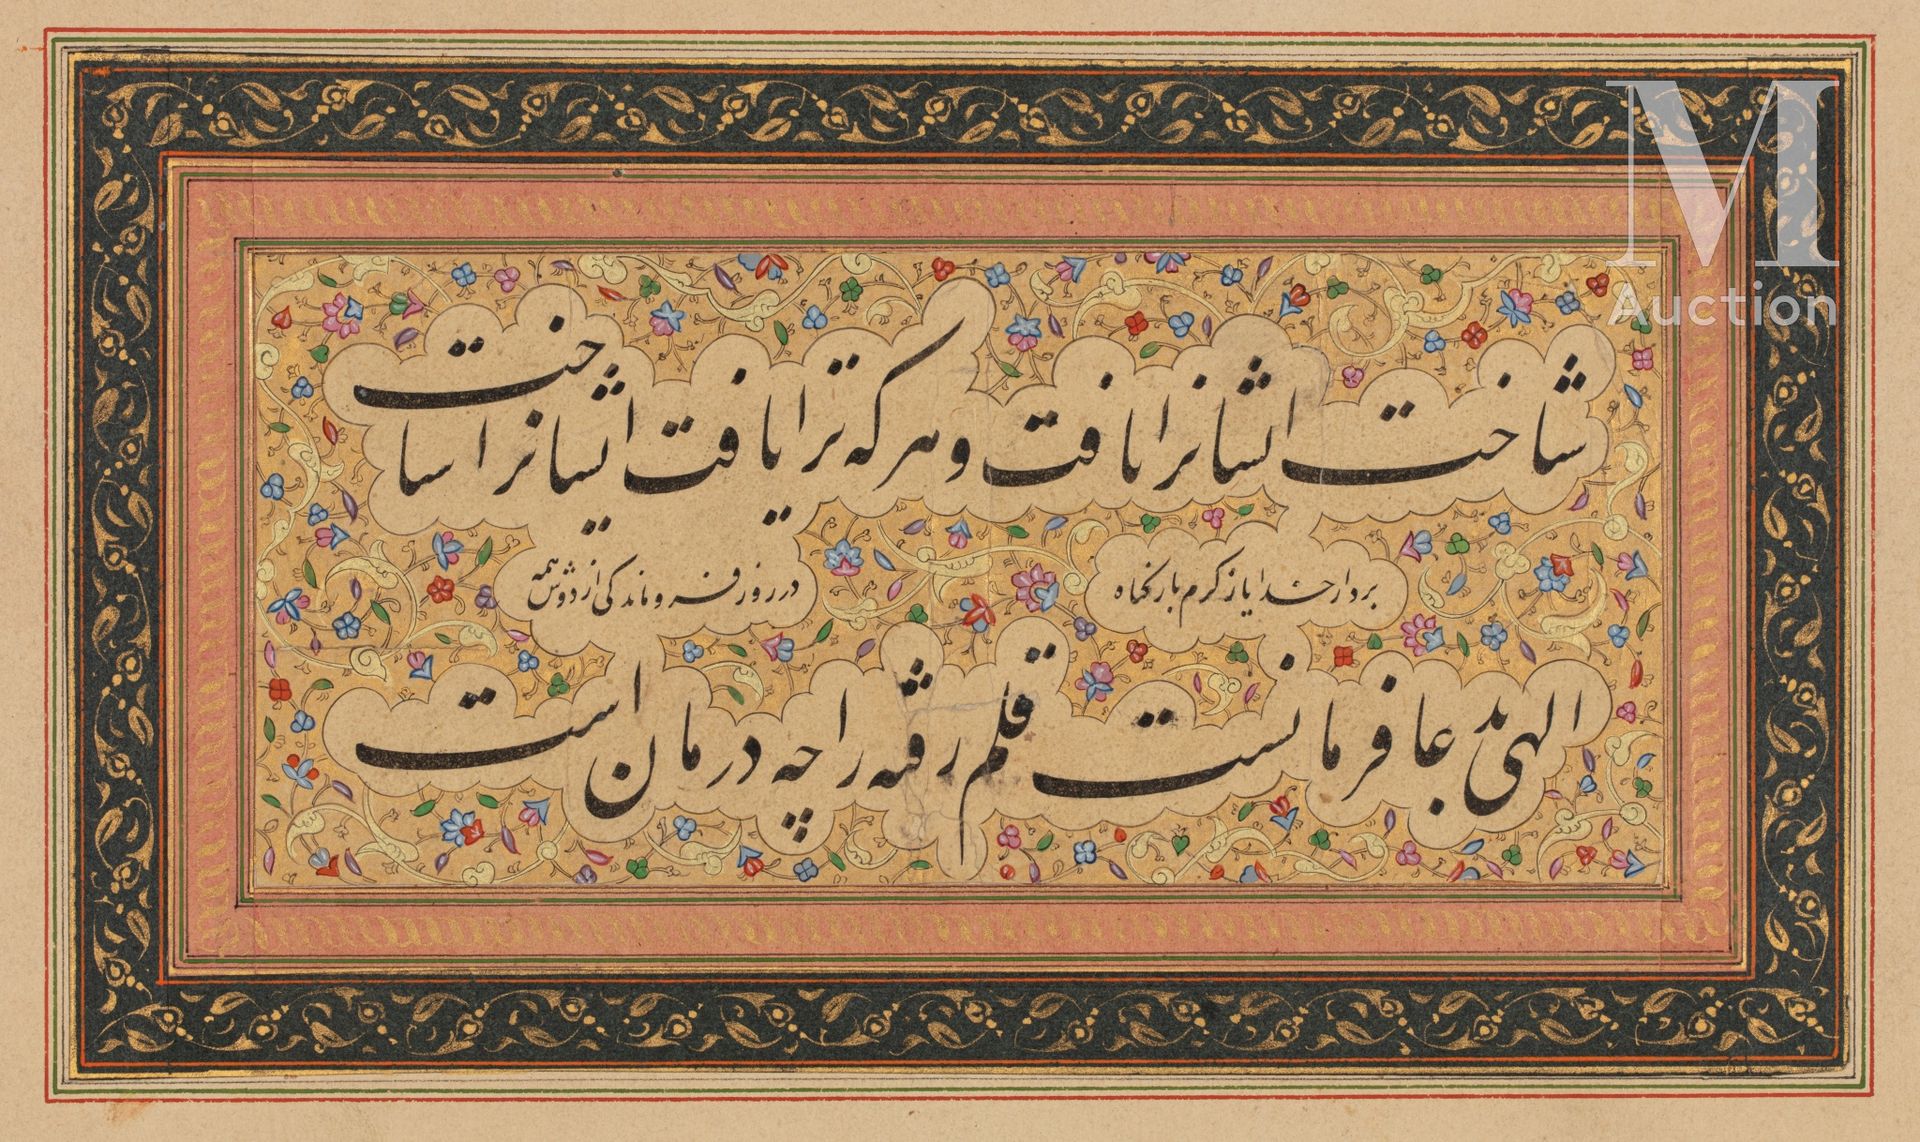 شناخت ایشانرا یافت و هر که ترا یافت ایشانرا شناخت
بردار خدایا ز کرم بار گناه
در روز فروماندگی از دوش همه
الهی بدعا فرمانست قلم رفته را چه درمان است
M
Auction